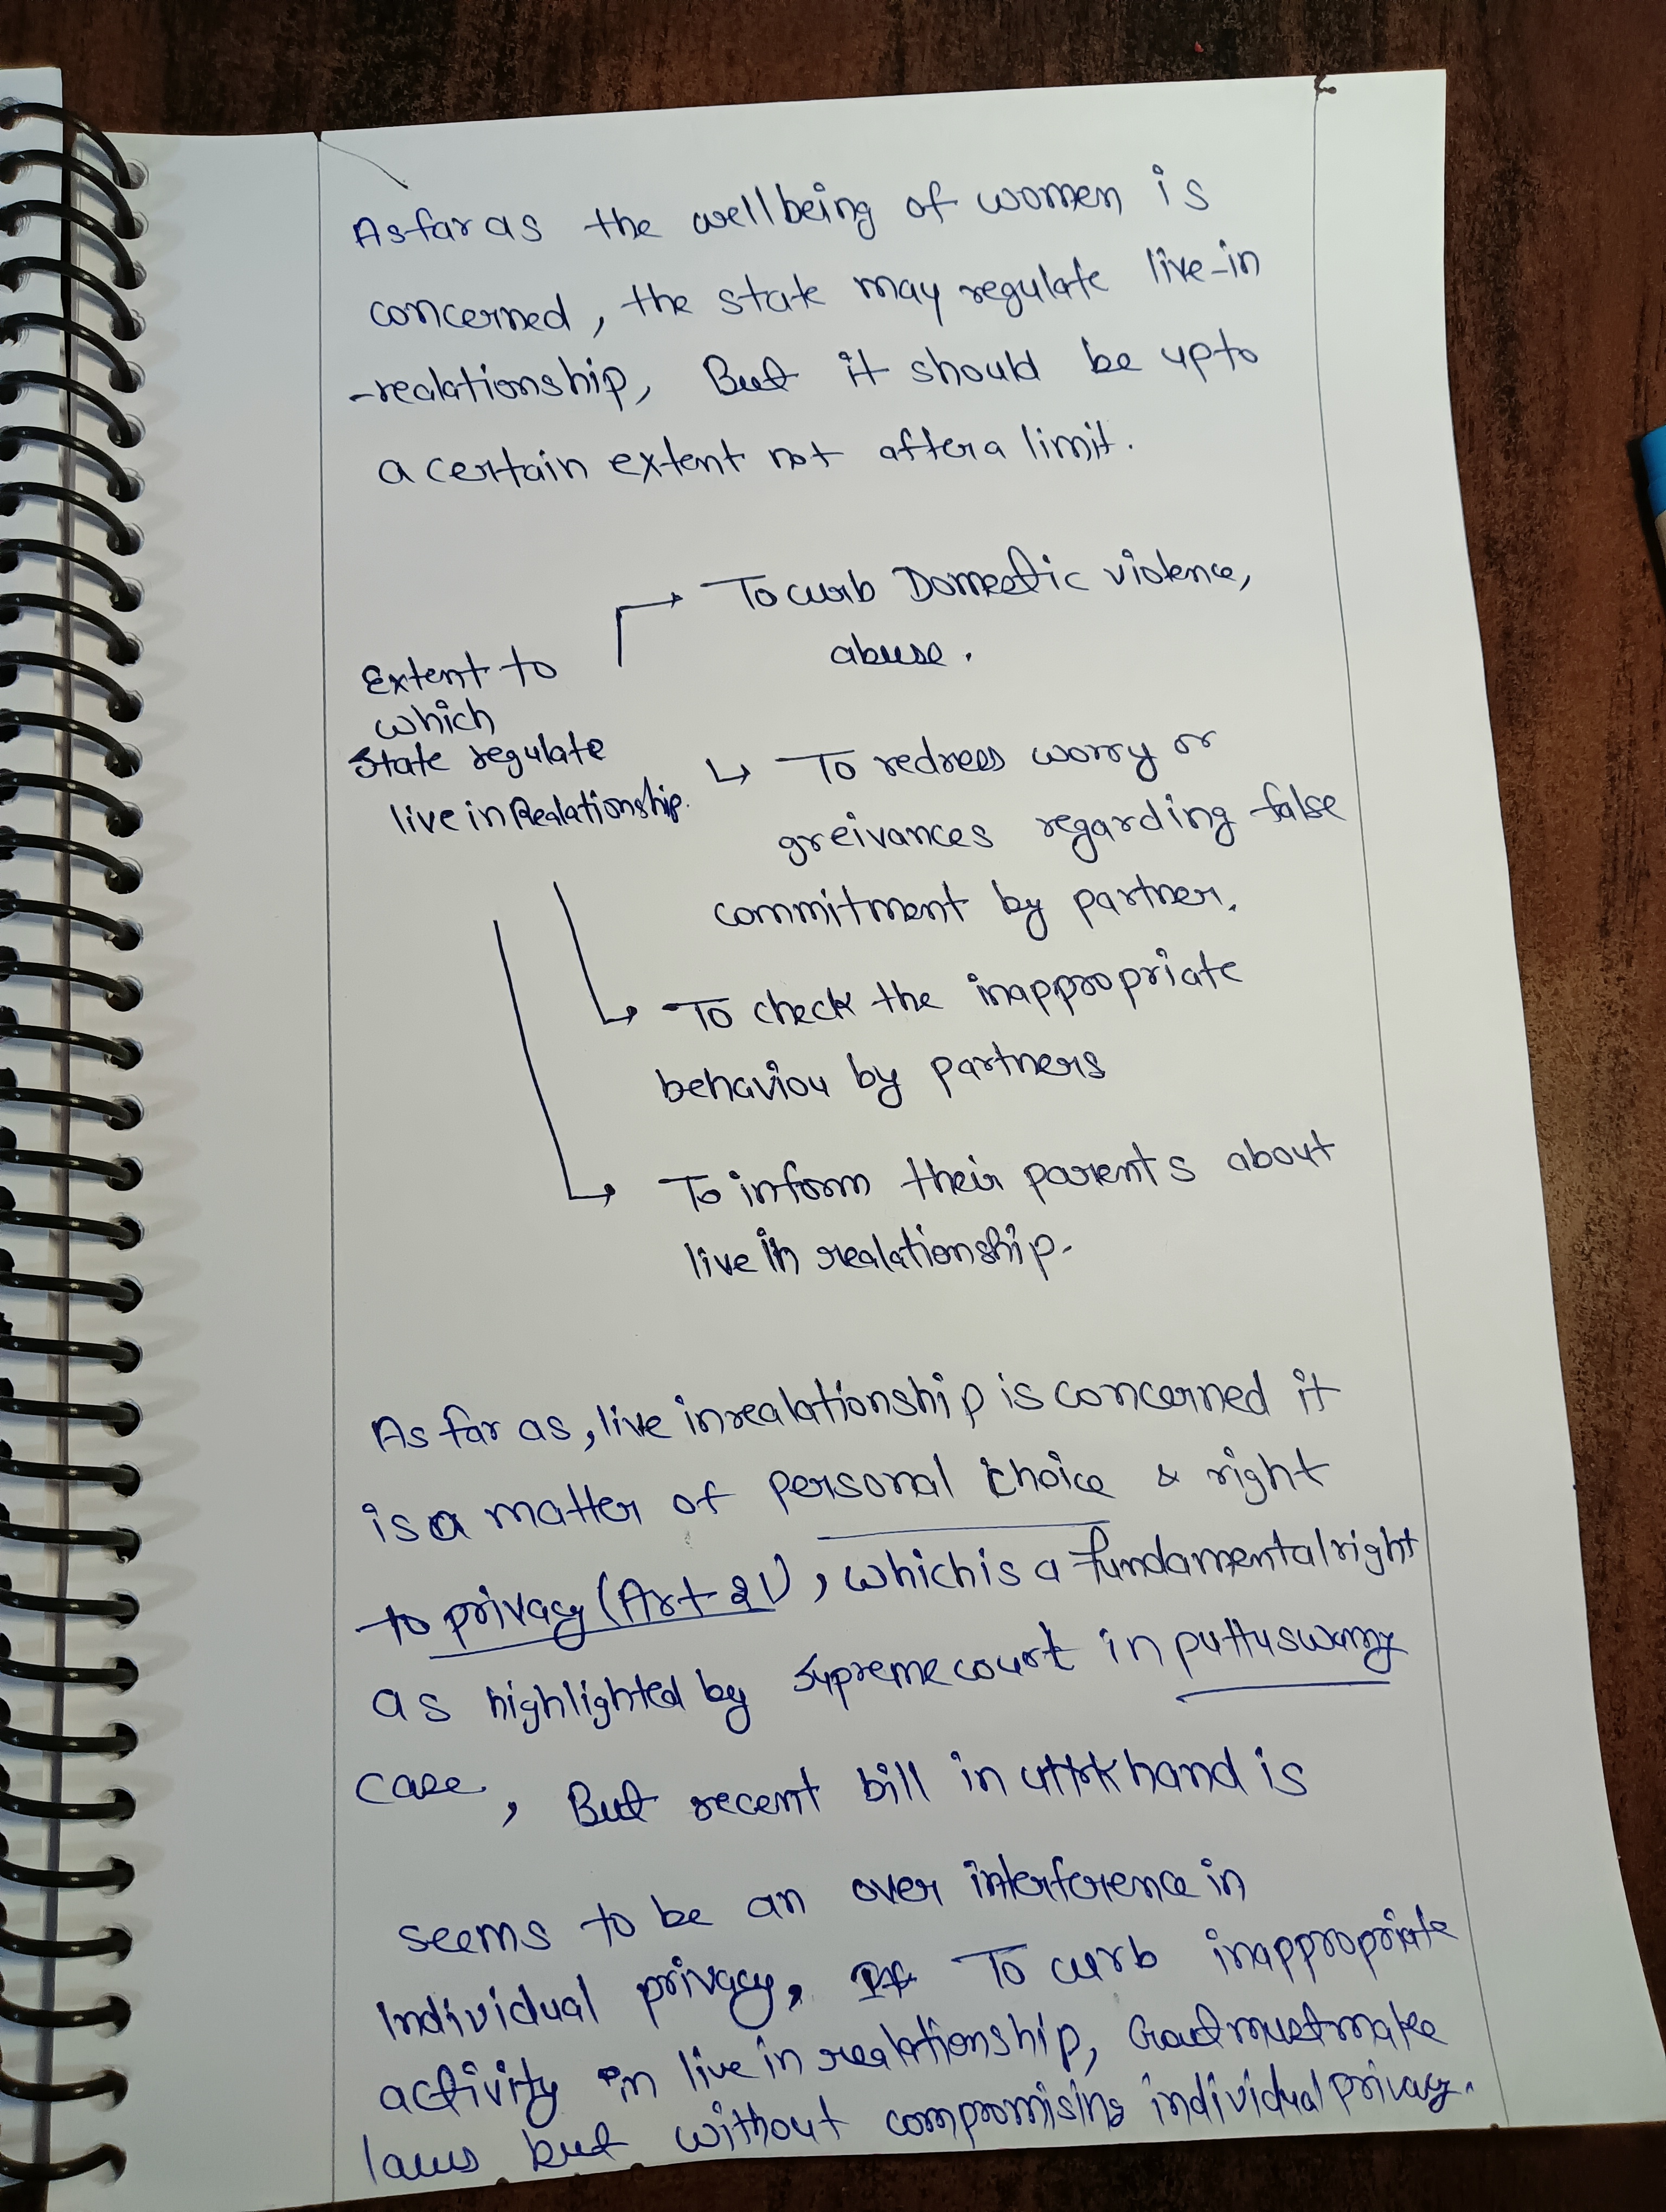 As far as the wellbeing of women is
concerned, the state may regulate live-in
-realationship, But it should be upto
a certain extent not after a limit.
To curb Domestic violence,
abuse.
Extent to
which
State regulate
live in Realationship.
To redress worry or
greivances regarding false
commitment by partner.
To check the inappropriate
behaviou by partners
To inform their parents about
live in realationship.
As far as, live in realationship is concerned it
is a matter of personal choice & right
to privacy (Art-21), which is a fundamental right
as highlighted by Supreme court in puttuswamy
case, But recent bill in uttrkhand is
seems to be an over interference in
Individual privacy, To curb inappropriate
activity in live in realationship, Govt must make
laws but without compromising individual privacy.